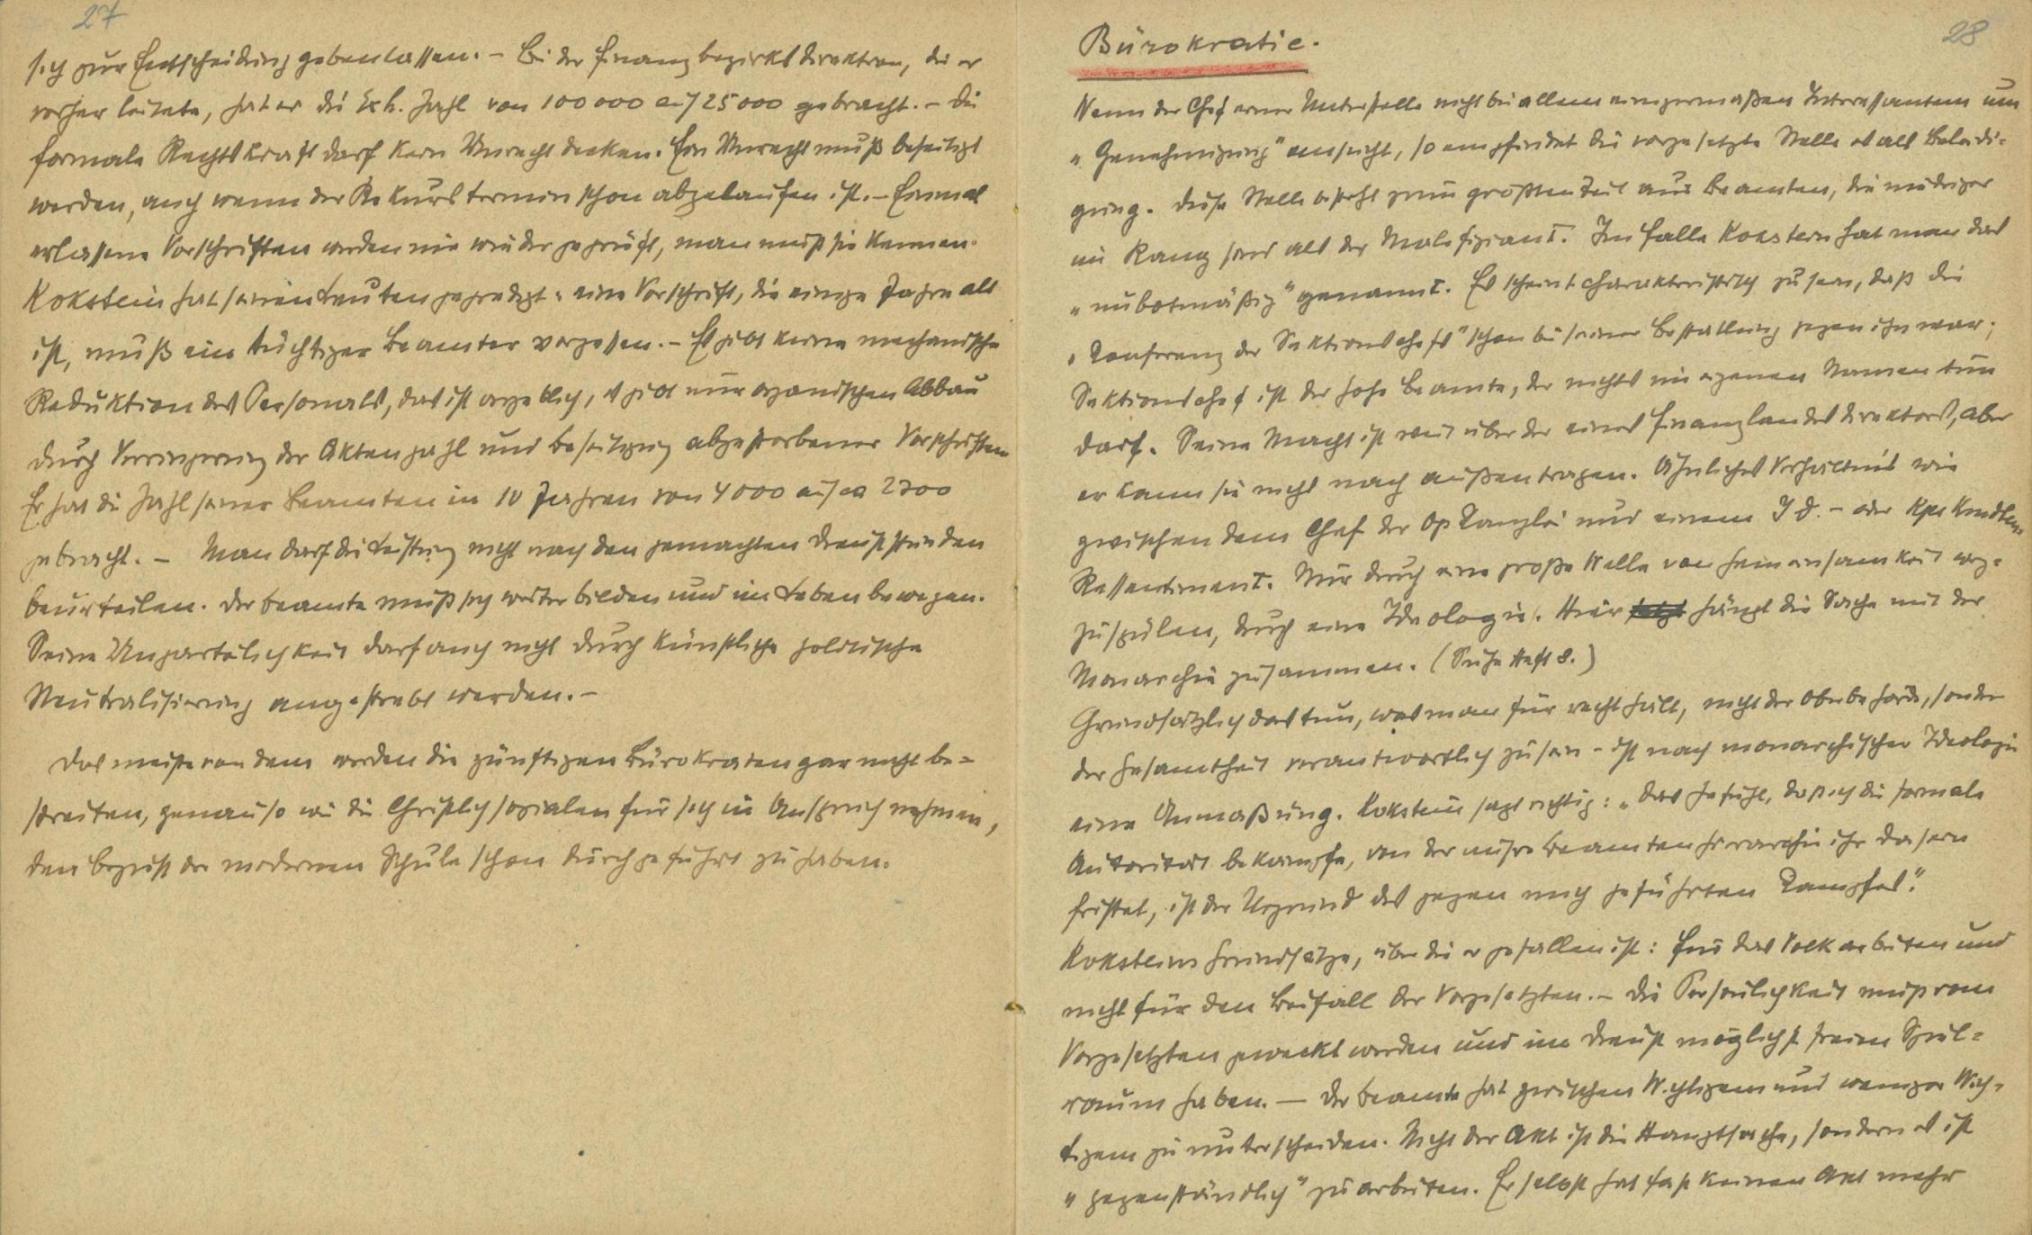 27
sich zur Entscheidung geben lassen. – Bei der Finanzbezirksdirektion, die er
vorher leitete, hat er die Exh. Zahl von 100 000 auf 25 000 gebracht. – Die
formale Rechtskraft darf kein Unrecht decken. Ein Unrecht muß beseitigt
werden, auch wenn der Rekurstermin schon abgelaufen ist. – Einmal
erlassene Vorschriften werden nie wieder geprüft, man muß sie kennen.
Kokstein hat seinen Leuten gepredigt: eine Vorschrift, die einige Jahre alt
ist, muß ein tüchtiger Beamter vergessen. – Es gibt keine mechanische
Reduktion des Personals, das ist vergeblich, es gibt nur organischen Abbau
durch Verringerung der Aktenzahl und Beseitigung abgestorbener Vorschriften
Er hat die Zahl seiner Beamten in 10 Jahren von 4000 auf ca 2700
gebracht. – Man darf die Leistung nicht nach den gemachten Dienststunden
beurteilen. Der Beamte muß sich weiter bilden und im Leben bewegen.
Seine Unparteilichkeit darf auch nicht durch künstliche politische
Neutralisierung angestrebt werden. –
Das meiste von dem werden die zünftigen Bürokraten gar nicht be=
streiten, genau so wie die Christlichsozialen für sich in Anspruch nehmen,
den Begriff der modernen Schule schon durchgeführt zu haben.
28
Bürokratie.
Wenn der Chef einer Unterstelle nicht bei allem einigermaßen Interessantem um
„Genehmigung" ansucht, so empfindet die vorgesetzte Stelle es als Beleidi-
gung. Diese Stelle besteht zum größten Teil aus Beamten, die niedriger
im Rang sind als der Malefiziant. Im Falle Kokstein hat man das
„unbotmäßig" genannt. Es scheint charakteristisch zu sein, daß die
„Konferenz der Sektionschefs" schon bei seiner Bestallung gegen ihn war;
Sektionschef ist der hohe Beamte, der nichts im eigenen Namen tun
darf. Seine Macht ist weit über der eines Finanzlandesdirektors, aber
er kann sie nicht nach außen tragen. Ähnliches Verhältnis wie
zwischen dem Chef der Op Kanzlei und einem I D. – oder Kps Kmdten
Ressentiment. Nur durch eine große Welle von Gemeinsamkeit weg-
zuspülen, durch eine Ideologie. Hier hängt die Sache mit der
Monarchie zusammen. (Siehe Heft 8.)
Grundsätzlich das tun, was man für recht hält, nicht der Oberbehörde, sondern
der Gesamtheit verantwortlich zu sein – ist nach monarchischer Ideologie
eine Anmaßung. Kokstein sagt richtig: „Das Gefühl, daß ich die formale
Autorität bekämpfe, von der unsre Beamtenhierarchie ihr Dasein
fristet, ist der Urgrund des gegen mich geführten Kampfes."
Koksteins Grundsätze, über die er gefallen ist: Für das Volk arbeiten und
nicht für den Beifall der Vorgesetzten. – Die Persönlichkeit muß vom
Vorgesetzten geweckt werden und im Dienst möglichst freien Spiel=
raum haben. – Der Beamte hat zwischen Wichtigem und weniger Wich-
tigem zu unterscheiden. Nicht der Akt ist die Hauptsache, sondern es ist
„gegenständlich" zu arbeiten. Er selbst hat fast keinen Akt mehr